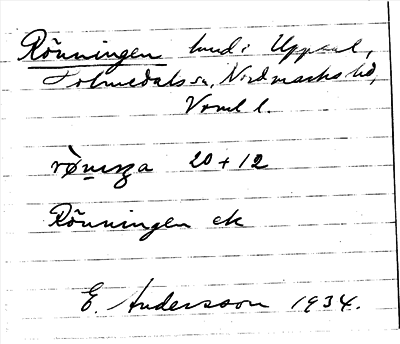 Rönningen hmd i Uppsal,
Holmedals sn, Nordmarks hd,
Vrml l.
20 + 12
Rönningen ek
E. Andersson 1934.